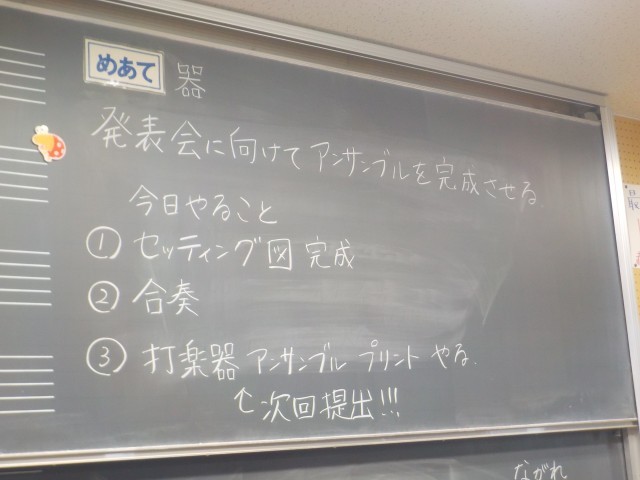 めあて 器
発表会に向けてアンサンブルを完成させる.
今日やること
① セッティング図 完成
② 合奏
③ 打楽器 アンサンブル プリント やる.
↑次回提出!!!
ながれ
最